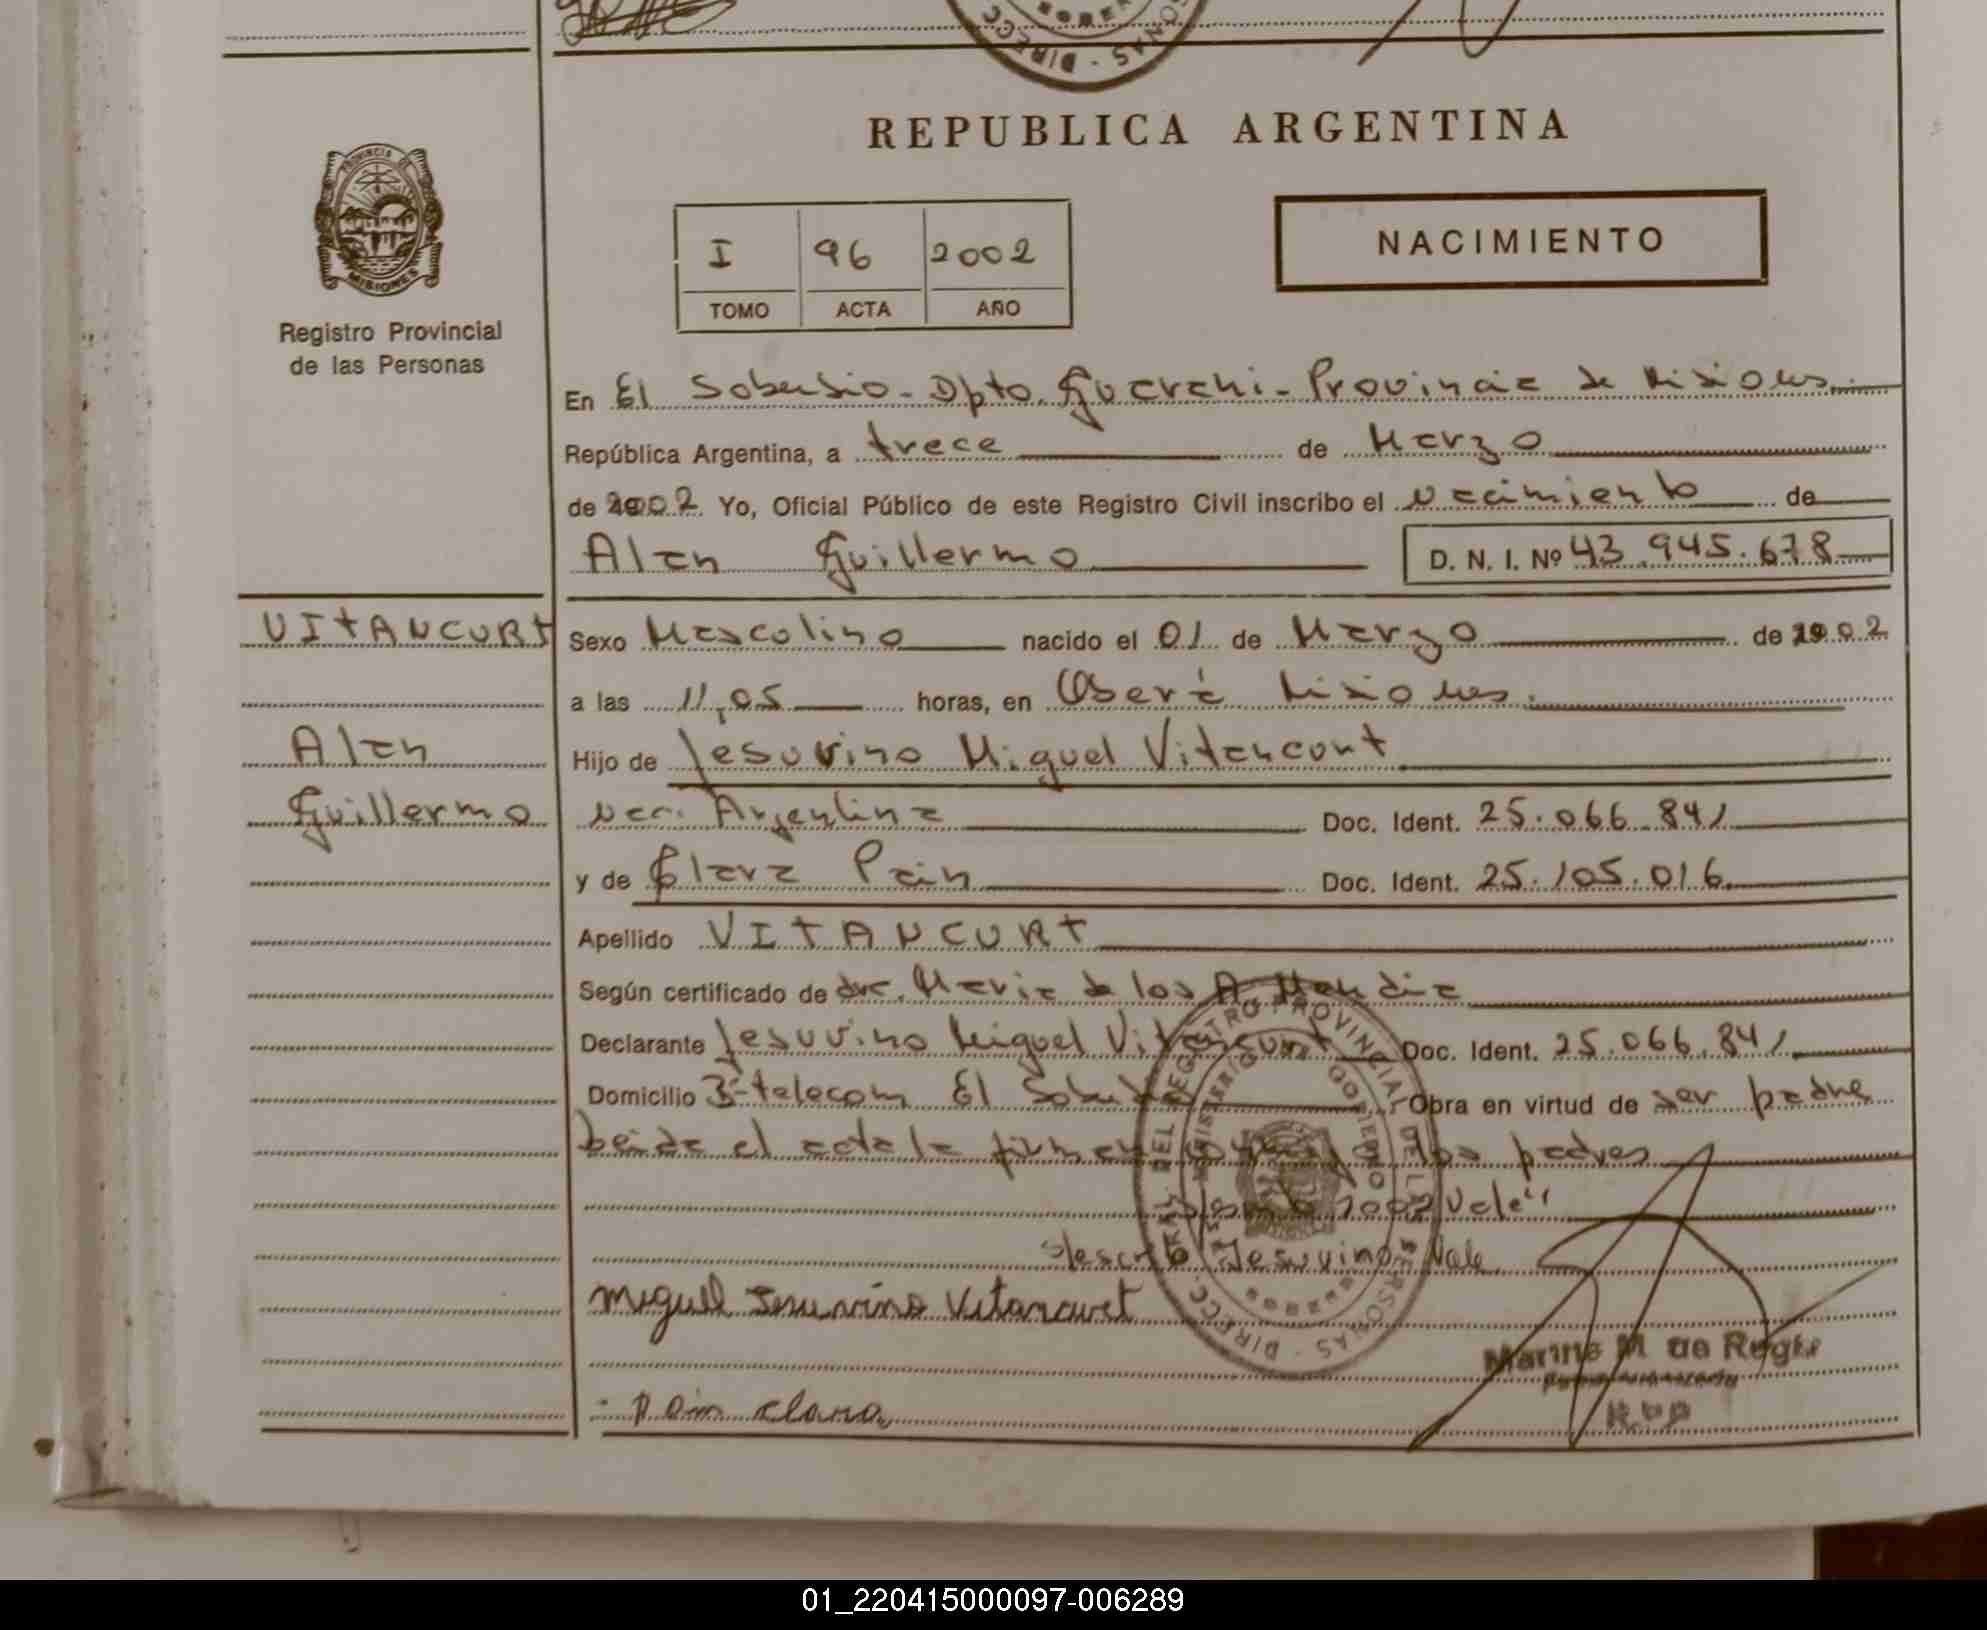 REPUBLICA ARGENTINA
PROVINCIA DE MISIONES
Registro Provincial
de las Personas
I 96 2002
TOMO ACTA AÑO
NACIMIENTO
En El Soberbio - Dpto. Guarani - Provincia de Misiones
República Argentina, a trece de Marzo
de 2002 Yo, Oficial Público de este Registro Civil inscribo el nacimiento de
Alan Guillermo D. N. I. Nº 43.945.678
VITANCURT
Alan
Guillermo
Sexo Masculino nacido el 01 de Marzo de 2002
a las 11,05 horas, en Oberá Misiones.
Hijo de Jesuvino Miguel Vitancurt
nac. Argentina Doc. Ident. 25.066.841
y de Clara Pain Doc. Ident. 25.105.016
Apellido VITANCURT
Según certificado de dra. Maria de los A. Mendia
Declarante Jesuvino Miguel Vitancurt Doc. Ident. 25.066.841
Domicilio Bº telecom El Soberbio Obra en virtud de ser padre
Leida el acta la firman los padres
2002 Vale"
Jesuvino Vale
DIRECC. GRAL. DEL REGISTRO PROVINCIAL DE LAS PERSONAS
MINISTERIO DE GOBIERNO
Miguel Jesuvino Vitancurt
Pain Clara
M. de Regis
01_220415000097-006289